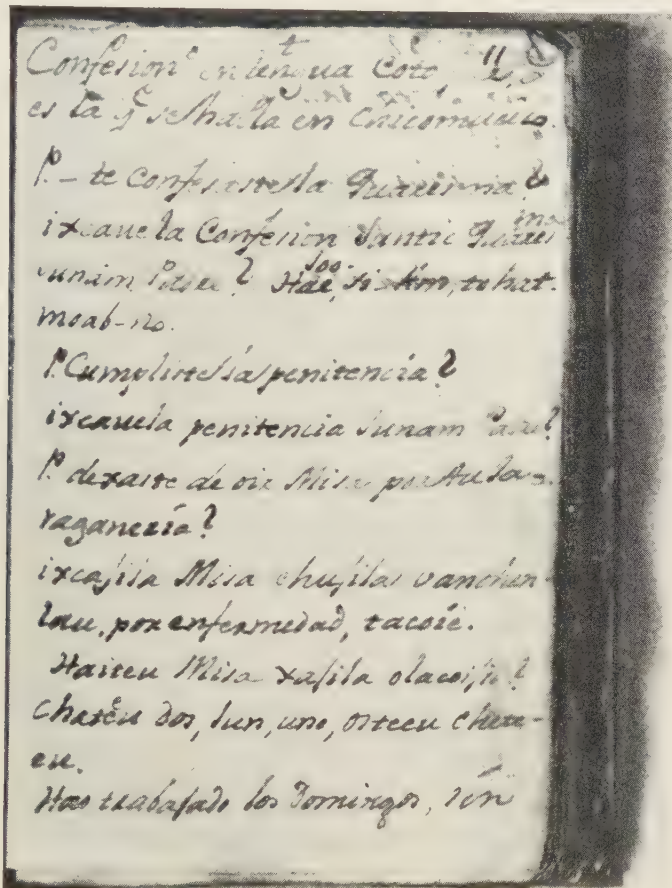 Confesion.ˢ en lengua Coto,
es la q.ᵉ se halla en Chicomucelo.
P.- te confesaste la Quaresma?
ixcauela Confesion Santic Quares
sunam Padre? soo Haé, si lim, to hat-
moab-no.
P. Cumpliste la penitencia?
ixcauela penitencia sunam Padre?
P. dexaste de oir Misa por Au la-
raganeria?
ixcasila Misa chusilas vanchen-
lau, por enfermedad, tacoie.
Haiteu Misa xasila
chateu dos, lun, uno,
eu.
Has trabajado los Domingos, sin